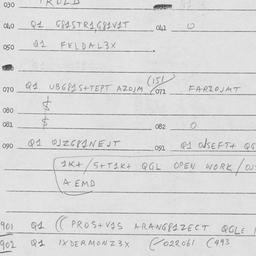 030
040 Q1 G81STR1,G81V1T 041 0
050 Q1 FXLDAL3X
070 Q1 UBG81S+TEPT AZOJM (151 071 FARZOJMT
080 $
081 $ 082 0
090 Q1 OJZG81NEJT 091 Q1 OJSEFT+ QG
1K+/S+T1K+ QGL OPEN WORK/OJ
A EMD
901 Q1 ((PROS+V1S ARANG81ZECT QGLE
902 Q1 1XDERMONZ3X